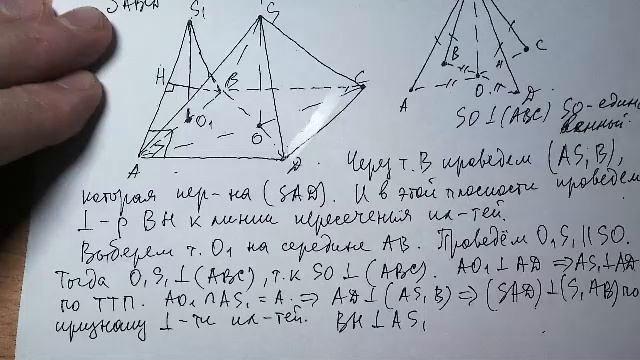 SABCD
S₁
S
H
B
C
O₁
O
A
D
B
C
O
A
D
SO⊥(ABC) SO-един
Через т. B проведем (AS₁B),
которая пер-на (SAD). И в этой плоскости проведем
⊥-р BH к линии пересечения пл-тей.
Выберем т. O₁ на середине AB. Проведём O₁S₁∥SO.
Тогда O₁S₁⊥(ABC), т.к SO⊥(ABC). AO₁⊥AD ⇒ AS₁⊥AD
по ТТП. AO₁∩AS₁=A. ⇒ AD⊥(AS₁B) ⇒ (SAD)⊥(S₁AB) по
признаку ⊥-ти пл-тей. BH⊥AS₁